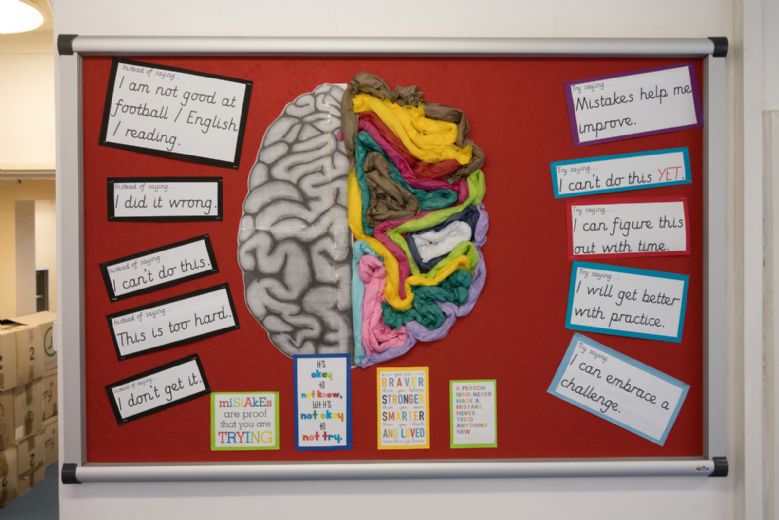 Instead of saying...
I am not good at
football / English
/ reading.
Instead of saying...
I did it wrong.
Instead of saying...
I can't do this.
Instead of saying...
This is too hard.
Instead of saying...
I don't get it.
Try saying...
Mistakes help me
improve.
Try saying...
I can't do this YET.
Try saying...
I can figure this
out with time.
Try saying...
I will get better
with practice.
Try saying...
I can embrace a
challenge.
miSTAKEs
are proof
that you are
TRYING
it's
okay
to
not know,
but it's
not okay
to
not try.
you are
BRAVER
than you believe
STRONGER
than you seem
SMARTER
than you think
AND LOVED
A PERSON
WHO NEVER
MADE A
MISTAKE,
NEVER
TRIED
ANYTHING
NEW
2
2
2